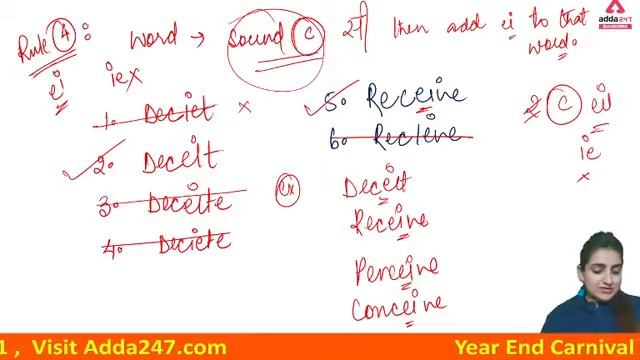 adda247
Rule 4: Word → Sound C सी then add ei to that word.
ei iex
1. Deciet x
2. Deceit
3. Deceite
4. Deciete
5. Receive
6. Recieve
C ei
ie
x
ex
Deceit
Receive
Perceive
Conceive
1 , Visit Adda247.com
Year End Carnival